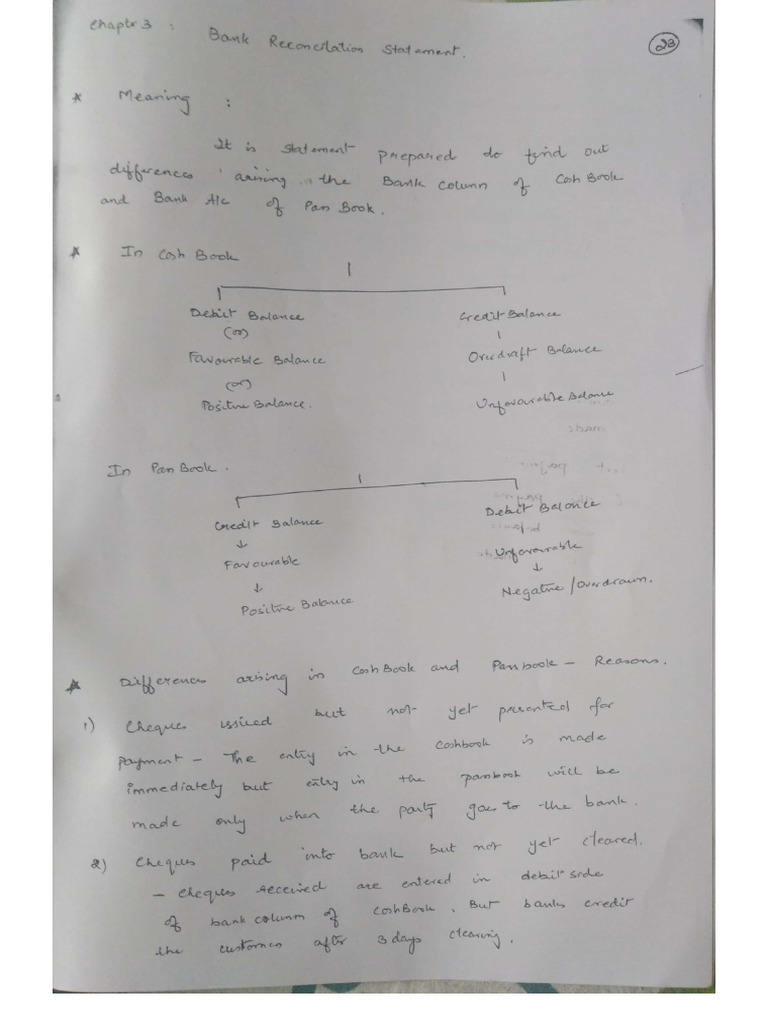 Chapter 3 : Bank Reconcilation Statement.
23
* Meaning :
It is statement prepared do find out
differences arising in the Bank column of Cash Book
and Bank A/c of Pass Book.
* In Cash Book
Debit Balance Credit Balance
(or)
Favourable Balance Overdraft Balance
(or)
Positive Balance. Unfavourable Balance
In Pass Book.
Credit Balance Debit Balance
↓
Favourable Unfavourable
↓ ↓
Positive Balance Negative / Overdrawn.
* Differences arising in Cash Book and Passbook - Reasons.
1) Cheques issued but not yet presented for
payment - The entry in the cashbook is made
immediately but entry in the passbook will be
made only when the party goes to the bank.
2) Cheques paid into bank but not yet cleared.
- cheques received are entered in debit side
of bank column of cashBook. But banks credit
the customers after 3 days clearing.